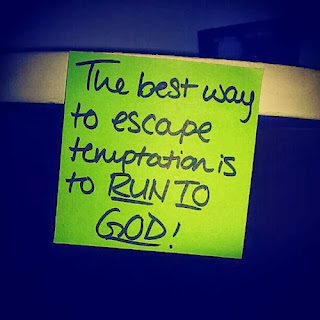 The best way
to escape
temptation is
to RUN TO
GOD!